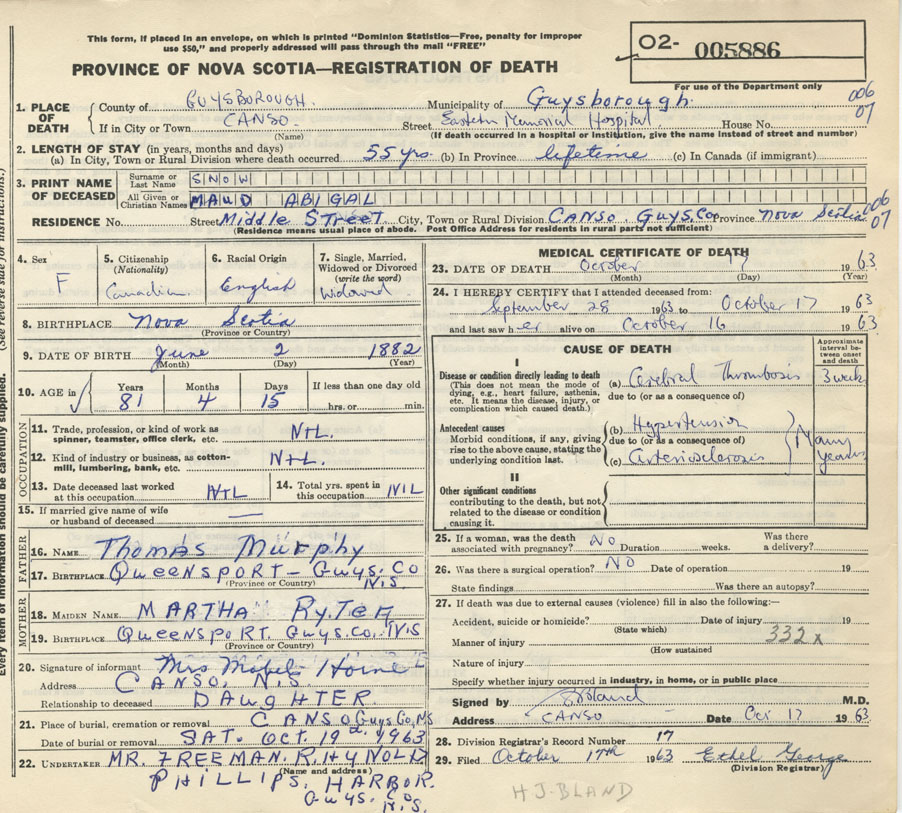 This form, if placed in an envelope, on which is printed "Dominion Statistics—Free, penalty for improper
use $50," and properly addressed will pass through the mail "FREE"
O2- 005886
PROVINCE OF NOVA SCOTIA—REGISTRATION OF DEATH
For use of the Department only
1. PLACE OF DEATH County of GUYSBOROUGH. Municipality of Guysborough. 006
If in City or Town CANSO (Name) Street Eastern Memorial Hospital House No. 07
(If death occurred in a hospital or institution, give the name instead of street and number)
2. LENGTH OF STAY (in years, months and days)
(a) In City, Town or Rural Division where death occurred 55 yrs. (b) In Province lifetime (c) In Canada (if immigrant)
3. PRINT NAME OF DECEASED Surname or Last Name SNOW
All Given or Christian Names MAUD ABIGAL
RESIDENCE No. Street Middle Street City, Town or Rural Division CANSO. GUYS. Co Province Nova Scotia 006 07
(Residence means usual place of abode. Post Office Address for residents in rural parts not sufficient)
4. Sex F
5. Citizenship (Nationality) Canadian
6. Racial Origin English
7. Single, Married, Widowed or Divorced (write the word) Widowed
8. BIRTHPLACE Nova Scotia
(Province or Country)
9. DATE OF BIRTH June 2 1882
(Month) (Day) (Year)
10. AGE in Years 81 Months 4 Days 15 If less than one day old hrs. or min.
OCCUPATION
11. Trade, profession, or kind of work as spinner, teamster, office clerk, etc. NIL.
12. Kind of industry or business, as cotton-mill, lumbering, bank, etc. NIL.
13. Date deceased last worked at this occupation NIL
14. Total yrs. spent in this occupation NIL
15. If married give name of wife or husband of deceased —
FATHER
16. NAME Thomas Murphy
17. BIRTHPLACE QUEENSPORT - GUYS. CO N.S.
(Province or Country)
MOTHER
18. MAIDEN NAME MARTHA
19. BIRTHPLACE QUEENSPORT. Guys. co. N.S
(Province or Country)
20. Signature of informant Mrs
Address CANSO. N.S
Relationship to deceased DAUGHTER
21. Place of burial, cremation or removal CANSO Guys Co, NS
Date of burial or removal SAT. OCT. 19th 1963
22. UNDERTAKER MR. FREEMAN. R.
(Name and address)
PHILLIPS, HARBOR.
Guys. Co.
N.S.
MEDICAL CERTIFICATE OF DEATH
23. DATE OF DEATH October 1963.
(Month) (Day) (Year)
24. I HEREBY CERTIFY that I attended deceased from:
September 28 1963 to October 17 1963
and last saw her alive on October 16 1963.
CAUSE OF DEATH
Approximate interval between onset and death
I
Disease or condition directly leading to death
(This does not mean the mode of dying, e.g., heart failure, asthenia, etc. It means the disease, injury, or complication which caused death.)
(a) Cerebral Thrombosis 3 weeks
due to (or as a consequence of)
Antecedent causes
Morbid conditions, if any, giving rise to the above cause, stating the underlying condition last.
(b) Hypertension
due to (or as a consequence of)
(c) Arteriosclerosis
Many years
II
Other significant conditions
contributing to the death, but not related to the disease or condition causing it.
25. If a woman, was the death associated with pregnancy? NO Duration weeks. Was there a delivery?
26. Was there a surgical operation? NO Date of operation 19
State findings Was there an autopsy?
27. If death was due to external causes (violence) fill in also the following:—
Accident, suicide or homicide? Date of injury 19
(State which)
Manner of injury 332x
(How sustained
Nature of injury
Specify whether injury occurred in industry, in home, or in public place
Signed by Bland M.D.
Address CANSO Date Oct 17 1963
28. Division Registrar's Record Number 17
29. Filed October 17th 1963 Ethel George
(Division Registrar)
H J. BLAND
(See reverse side for instructions.)
Every item of information should be carefully supplied.